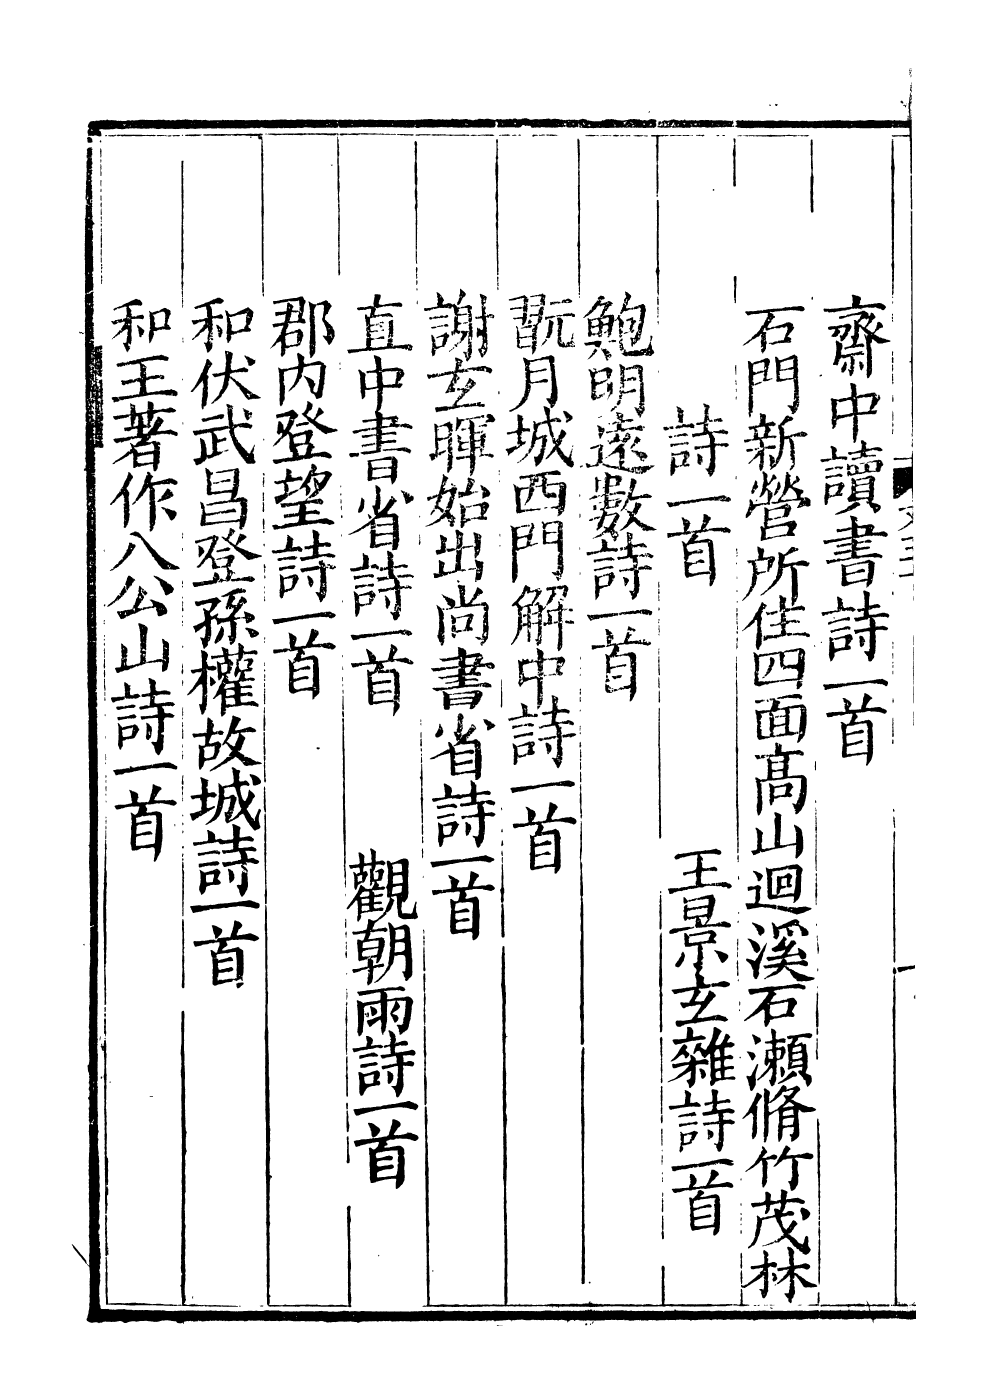 齋中讀書詩一首
石門新營所住四面髙山迴溪石瀬脩竹茂林
詩一首　王景玄雜詩一首
鮑明遠數詩一首
翫月城西門解中詩一首
謝玄暉始出尚書省詩一首
直中書省詩一首　觀朝雨詩一首
郡内登望詩一首
和伏武昌登孫權故城詩一首
和王著作八公山詩一首